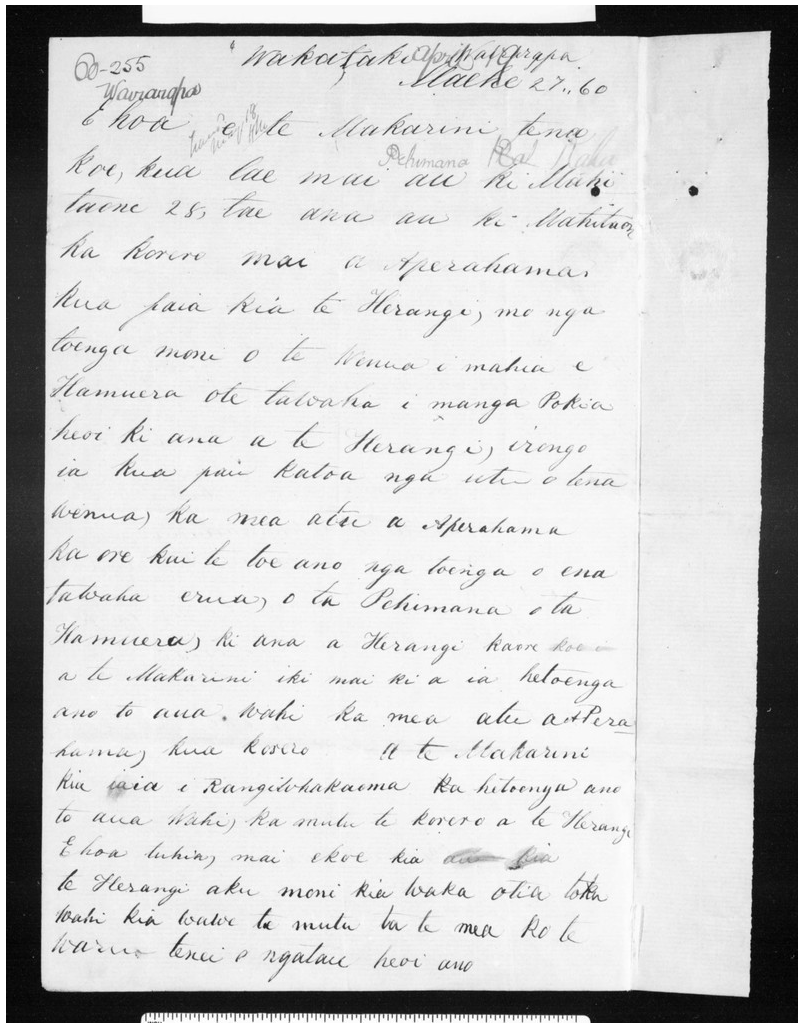 60-255
Wakataki Wairarapa
Wairarapa
Maehe 27, 60
E hoa e te Makarini, tena
Pehimana
koe, kua tae mai au ki Mahi
taone 28, tae ana au ki Mahitaon
ka korero mai a Aperahama,
kua paia kia te Herangi, mo nga
toenga moni o te Wenua i mahia e
Hamuera ote tawaha i manga Pokia
heoi ki ana a te Herangi, irongo
ia kua pau katoa nga utu o tena
wenua, ka mea atu a Aperahama
ka ore kai te toe ano nga toenga o ena
tawaha erua, o ta Pehimana o ta
Hamuera, ki ana a Herangi kaore koe i
a te Makarini iki mai ki a ia hetoenga
ano to aua wahi ka mea atu a Apera
hama, kua korero a te Makarini
kia iaia i Rangiwhakaoma ka hetoenga ano
to aua Wahi, ka mutu te korero a te Herangi
E hoa tuhia, mai ekoe kia
te Herangi aku moni kia waka otia toku
wahi kia wawe te mutu ta te mea ko te
waru tenei o ngatau heoi ano